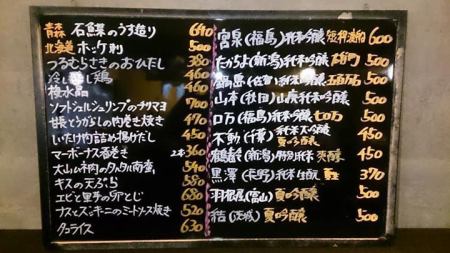 青森 石鰈のうす造り 640
北海道 ホッケ刺 500
つるむらさきのおひたし 380
冷し 鶏 460
梅水晶 460
ソフトシェルシュリンプのチリマヨ 700
甘長とうがらしの肉巻き焼き 470
いたけ肉詰め揚げだし 450
マーボーナス春巻き 2本 360
大山どり肉のタルタル南蛮 540
キスの天ぷら 580
エビと里芋の卵とじ 680
ナスとズッキーニのミートソース焼き 520
タコライス 630
宮泉(福島)純米吟醸 600
たかちよ(新潟)純米吟醸 500
鍋島(佐賀)純米吟醸 五百万石 500
山本(秋田)山廃純米吟醸 500
ロ万(福島)純米吟醸 七ロ万 500
不動(千葉)純米大吟醸 夏吟醸 450
鶴齢(新潟)特別純米 爽醇 450
黒澤(長野)純米生酛 370
羽根屋(富山)夏吟醸 500
(茨城)夏吟醸 500